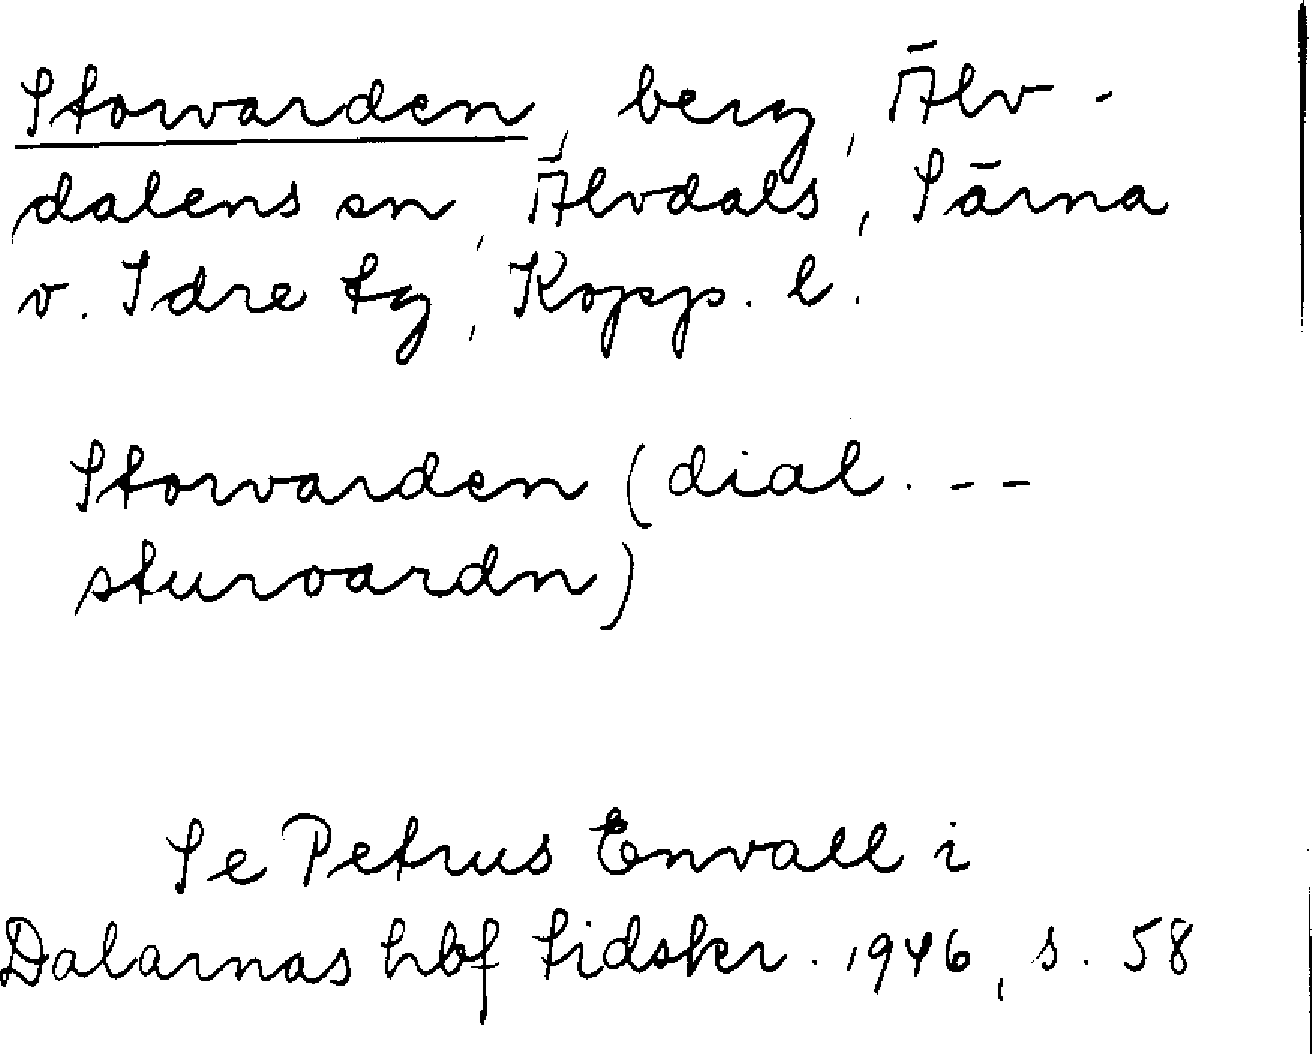 Storvarden, berg, Älv-
dalens sn, Älvdals, Särna
o. Idre tg, Kopp. l.
Storvarden (dial. ---
sturvardn)
Se Petrus Envall i
Dalarnas hbf tidskr. 1946, s. 58